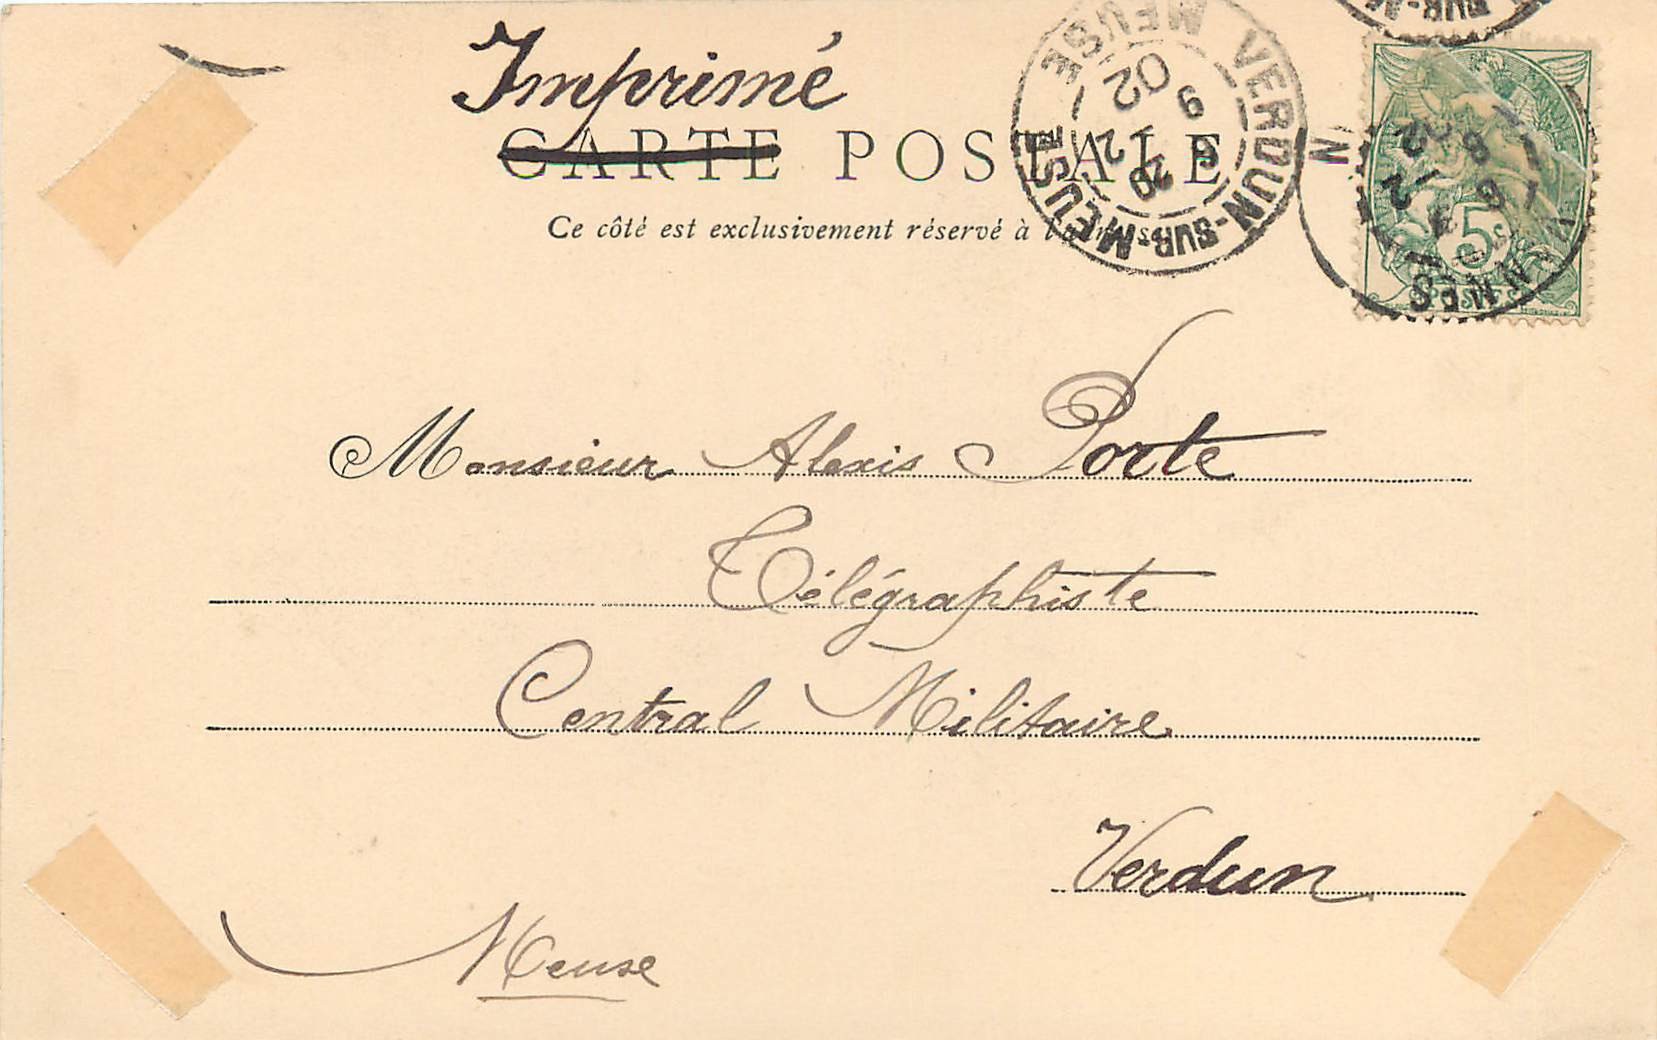 Imprimé
CARTE POSTALE
Ce côté est exclusivement réservé à l'adresse
VERDUN-SUR-MEUSE
MEUSE
9
12
02
5
POSTES
Monsieur Alexis Porte
Télégraphiste
Central Militaire
Verdun
Meuse